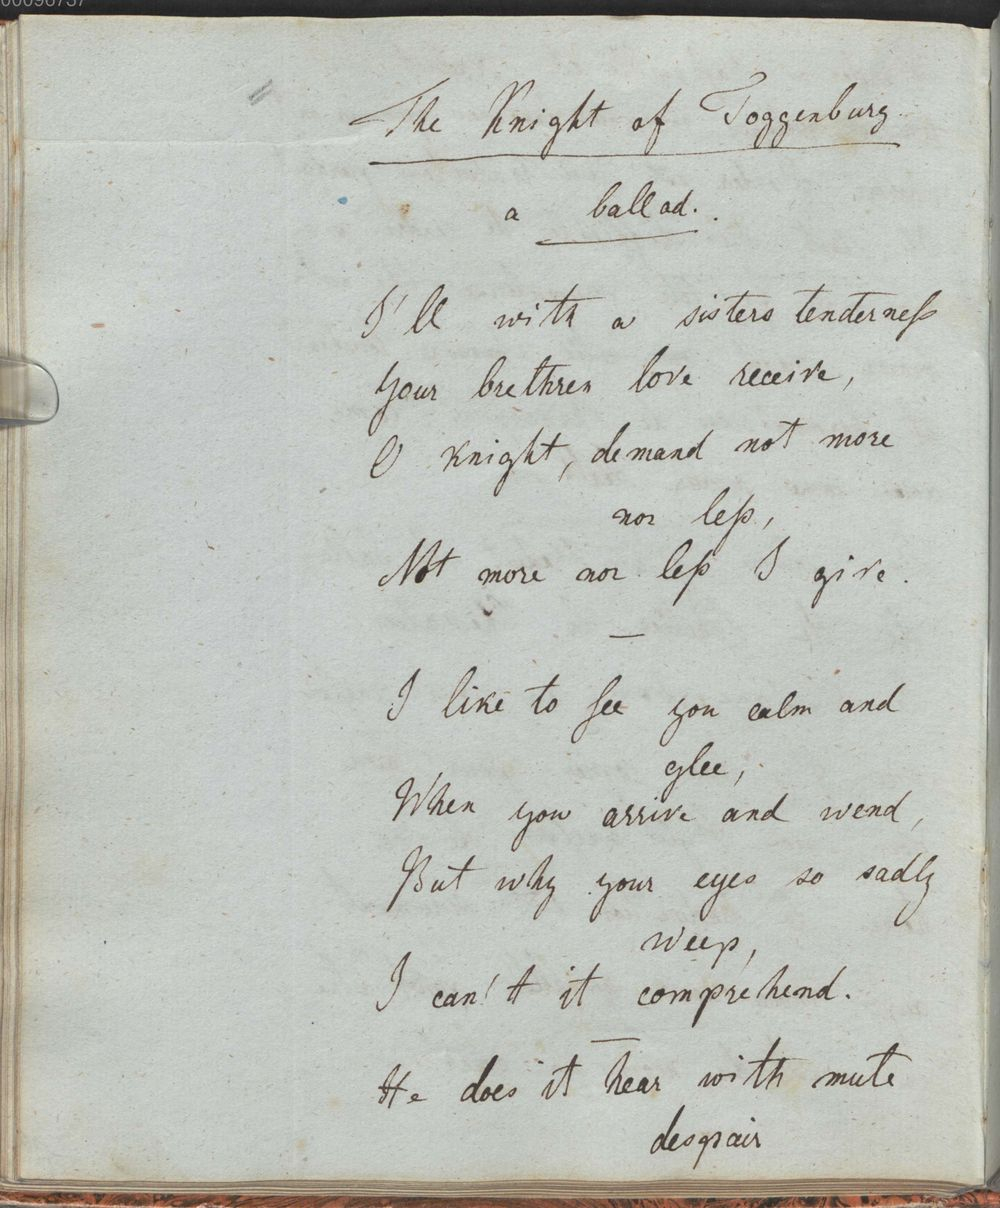 00096737
The Knight of Toggenburg
a ballad.
I'll with a sisters tenderneſs
Your brethren love receive,
O Knight, demand not more
nor leſs,
Not more nor leſs I give.
—
I like to ſee you calm and
glee,
When you arrive and wend,
But why your eyes so sadly
weep,
I can't it comprehend.
—
He does it hear with mute
despair